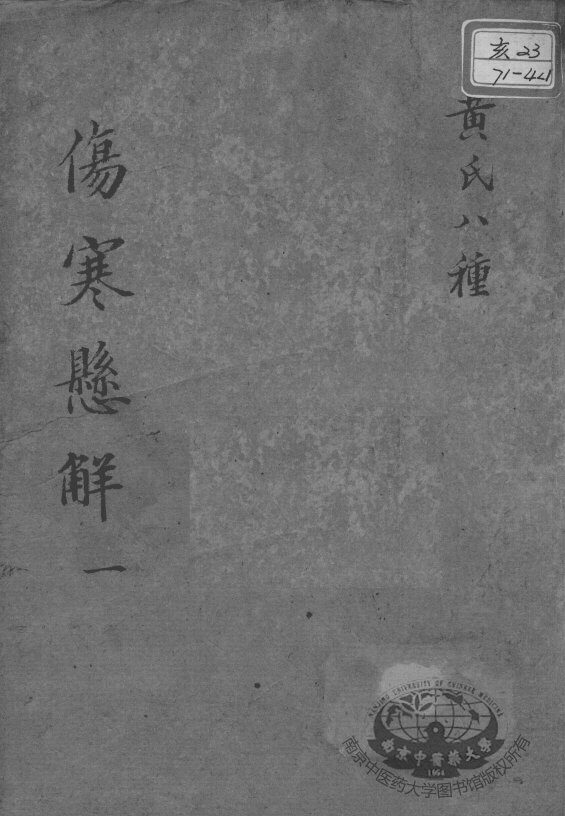 亥23
71-441
黄氏八種
傷寒懸觧
一
NANJING UNIVERSITY OF CHINESE MEDICINE
南京中醫藥大學
1954
南京中医药大学图书馆版权所有